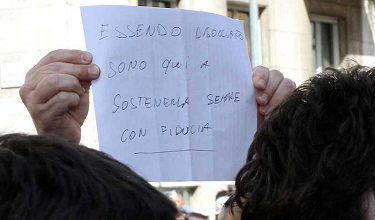 ESSENDO DISOCCUPATO
SONO QUI A
SOSTENERLA SEMPRE
CON FIDUCIA